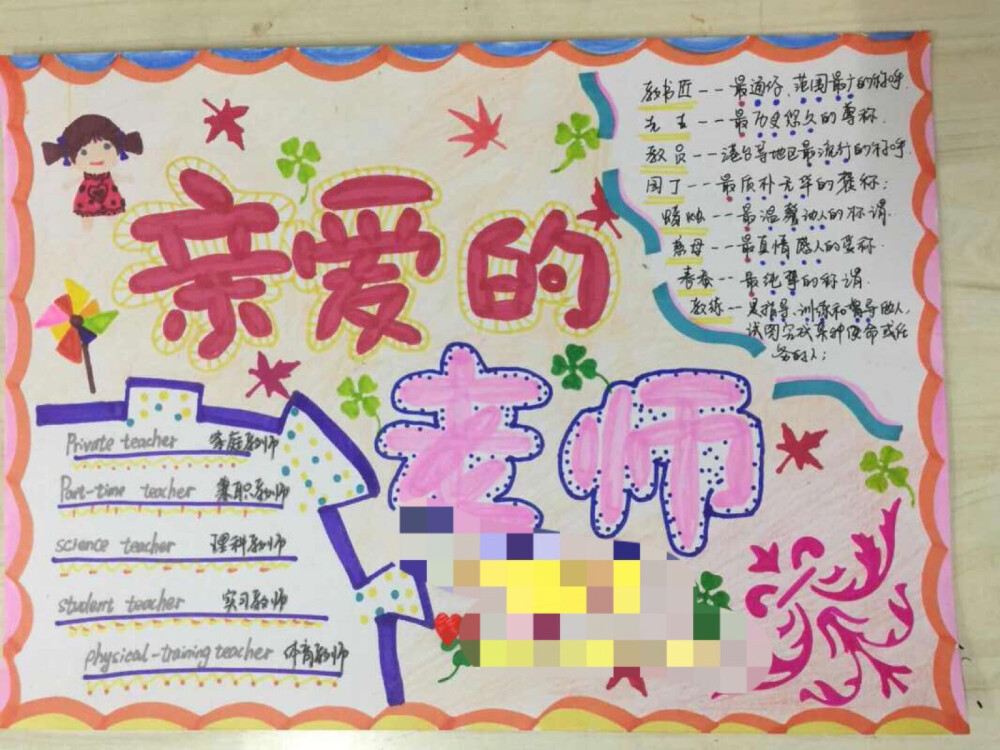 亲爱的
老师
教书匠--最通俗、范围最广的称呼.
先生--最历史悠久的尊称.
教员--港台等地区最流行的称呼.
园丁--最质朴无华的褒称;
蜡烛--最温馨动人的称谓.
慈母--最真情感人的爱称
春蚕--最纯挚的称谓.
教练--是指导、训练和督导的人,
试图完成某种使命或任
务的人;
Private teacher 家庭教师
Part-time teacher 兼职教师
science teacher 理科教师
student teacher 实习教师
physical-training teacher 体育教师